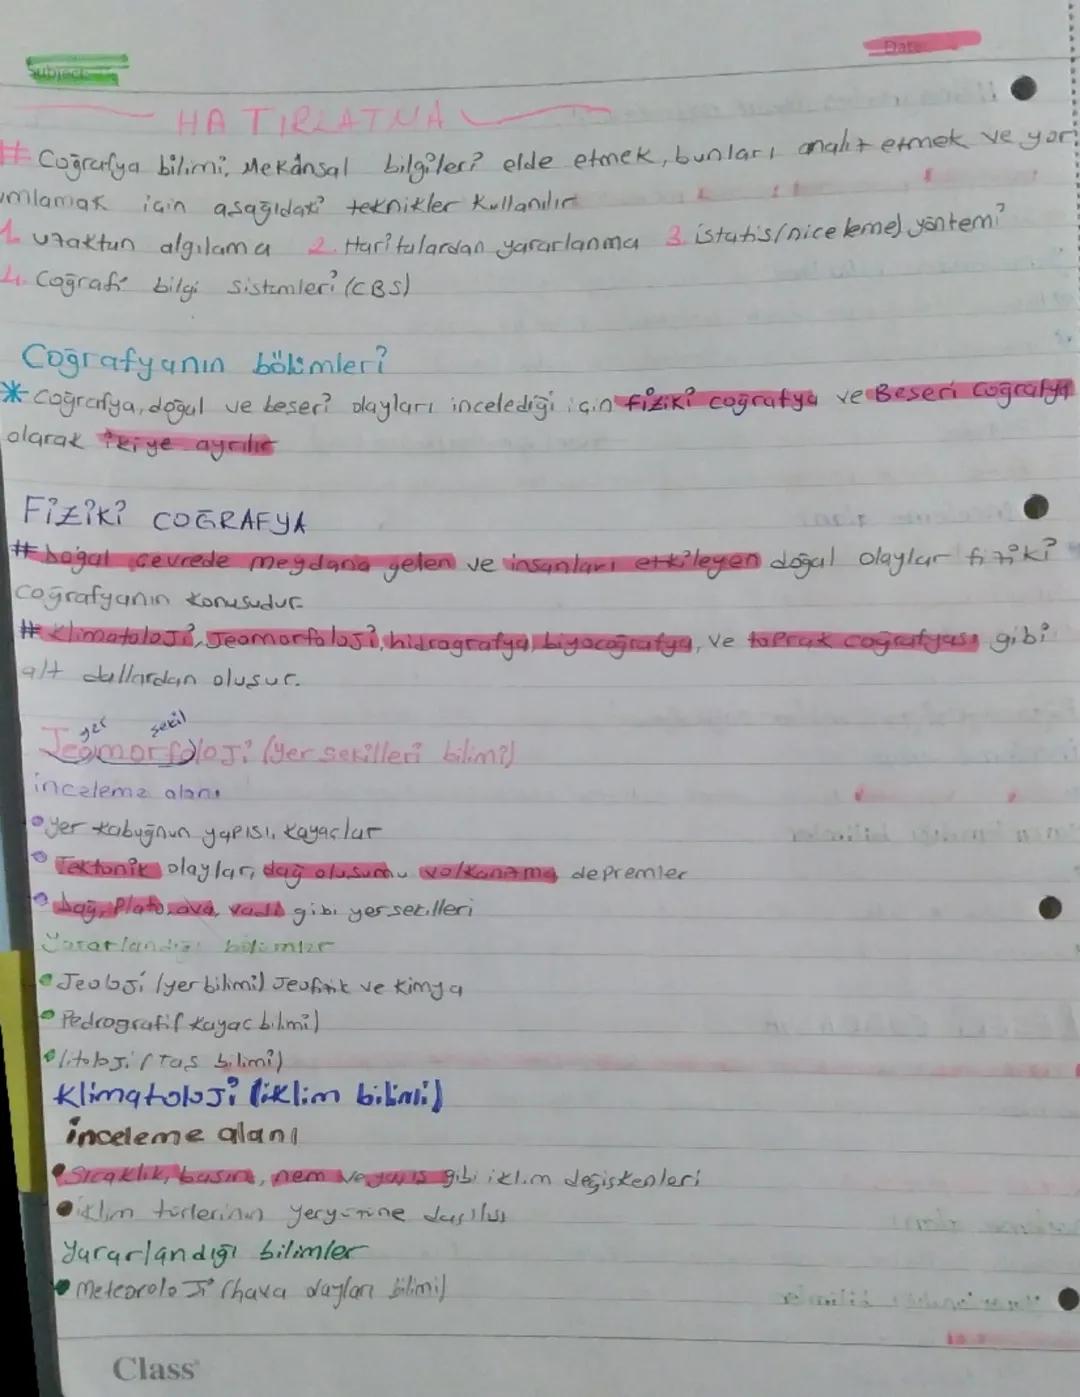 Subject:
Date:
HATIRLATMA
# Coğrafya bilimi, Mekânsal bilgileri elde etmek, bunları analiz etmek ve yor
umlamak için aşağıdaki teknikler kullanılır
1. uzaktun algılama 2. Haritalardan yararlanma 3. istatis/niceleme) yöntemi
4. Coğrafi bilgi sistemleri (CBS)
Coğrafyanın bölümleri
* coğrafya, doğal ve beseri olayları incelediği için fiziki coğrafya ve Beseri coğrafya
olarak ikiye ayrılır
Fiziki COĞRAFYA
# Doğal çevrede meydana gelen ve insanları etkileyen doğal olaylar fiziki
coğrafyanın konusudur.
# klimatoloji, Jeomorfoloji, hidrografya, biyocoğrafya, ve toprak coğrafyası gibi
alt dallardan olusur.
yer sekil
Jeomorfoloji (yer sekilleri bilimi)
inceleme alanı
• yer kabuğnun yapısı, kayaçlar
• Tektonik olaylar, dağ olusumu volkanizma depremler
• Dağ, Plato, ova, vadi gibi yersekilleri
Yararlandığı bölümler
• Jeoloji (yer bilimi) Jeofizik ve kimya
• Pedrografi( kayac bilmi)
• litoloji (Tas bilimi)
Klimatoloji (iklim bilimi)
inceleme alanı
• Sıcaklık, basınç, nem ve yağıs gibi iklim değiskenleri
• iklim türlerinin yeryüzüne dağılısı
Yararlandığı bilimler
• Meteoroloji (hava olayları bilimi)
Class